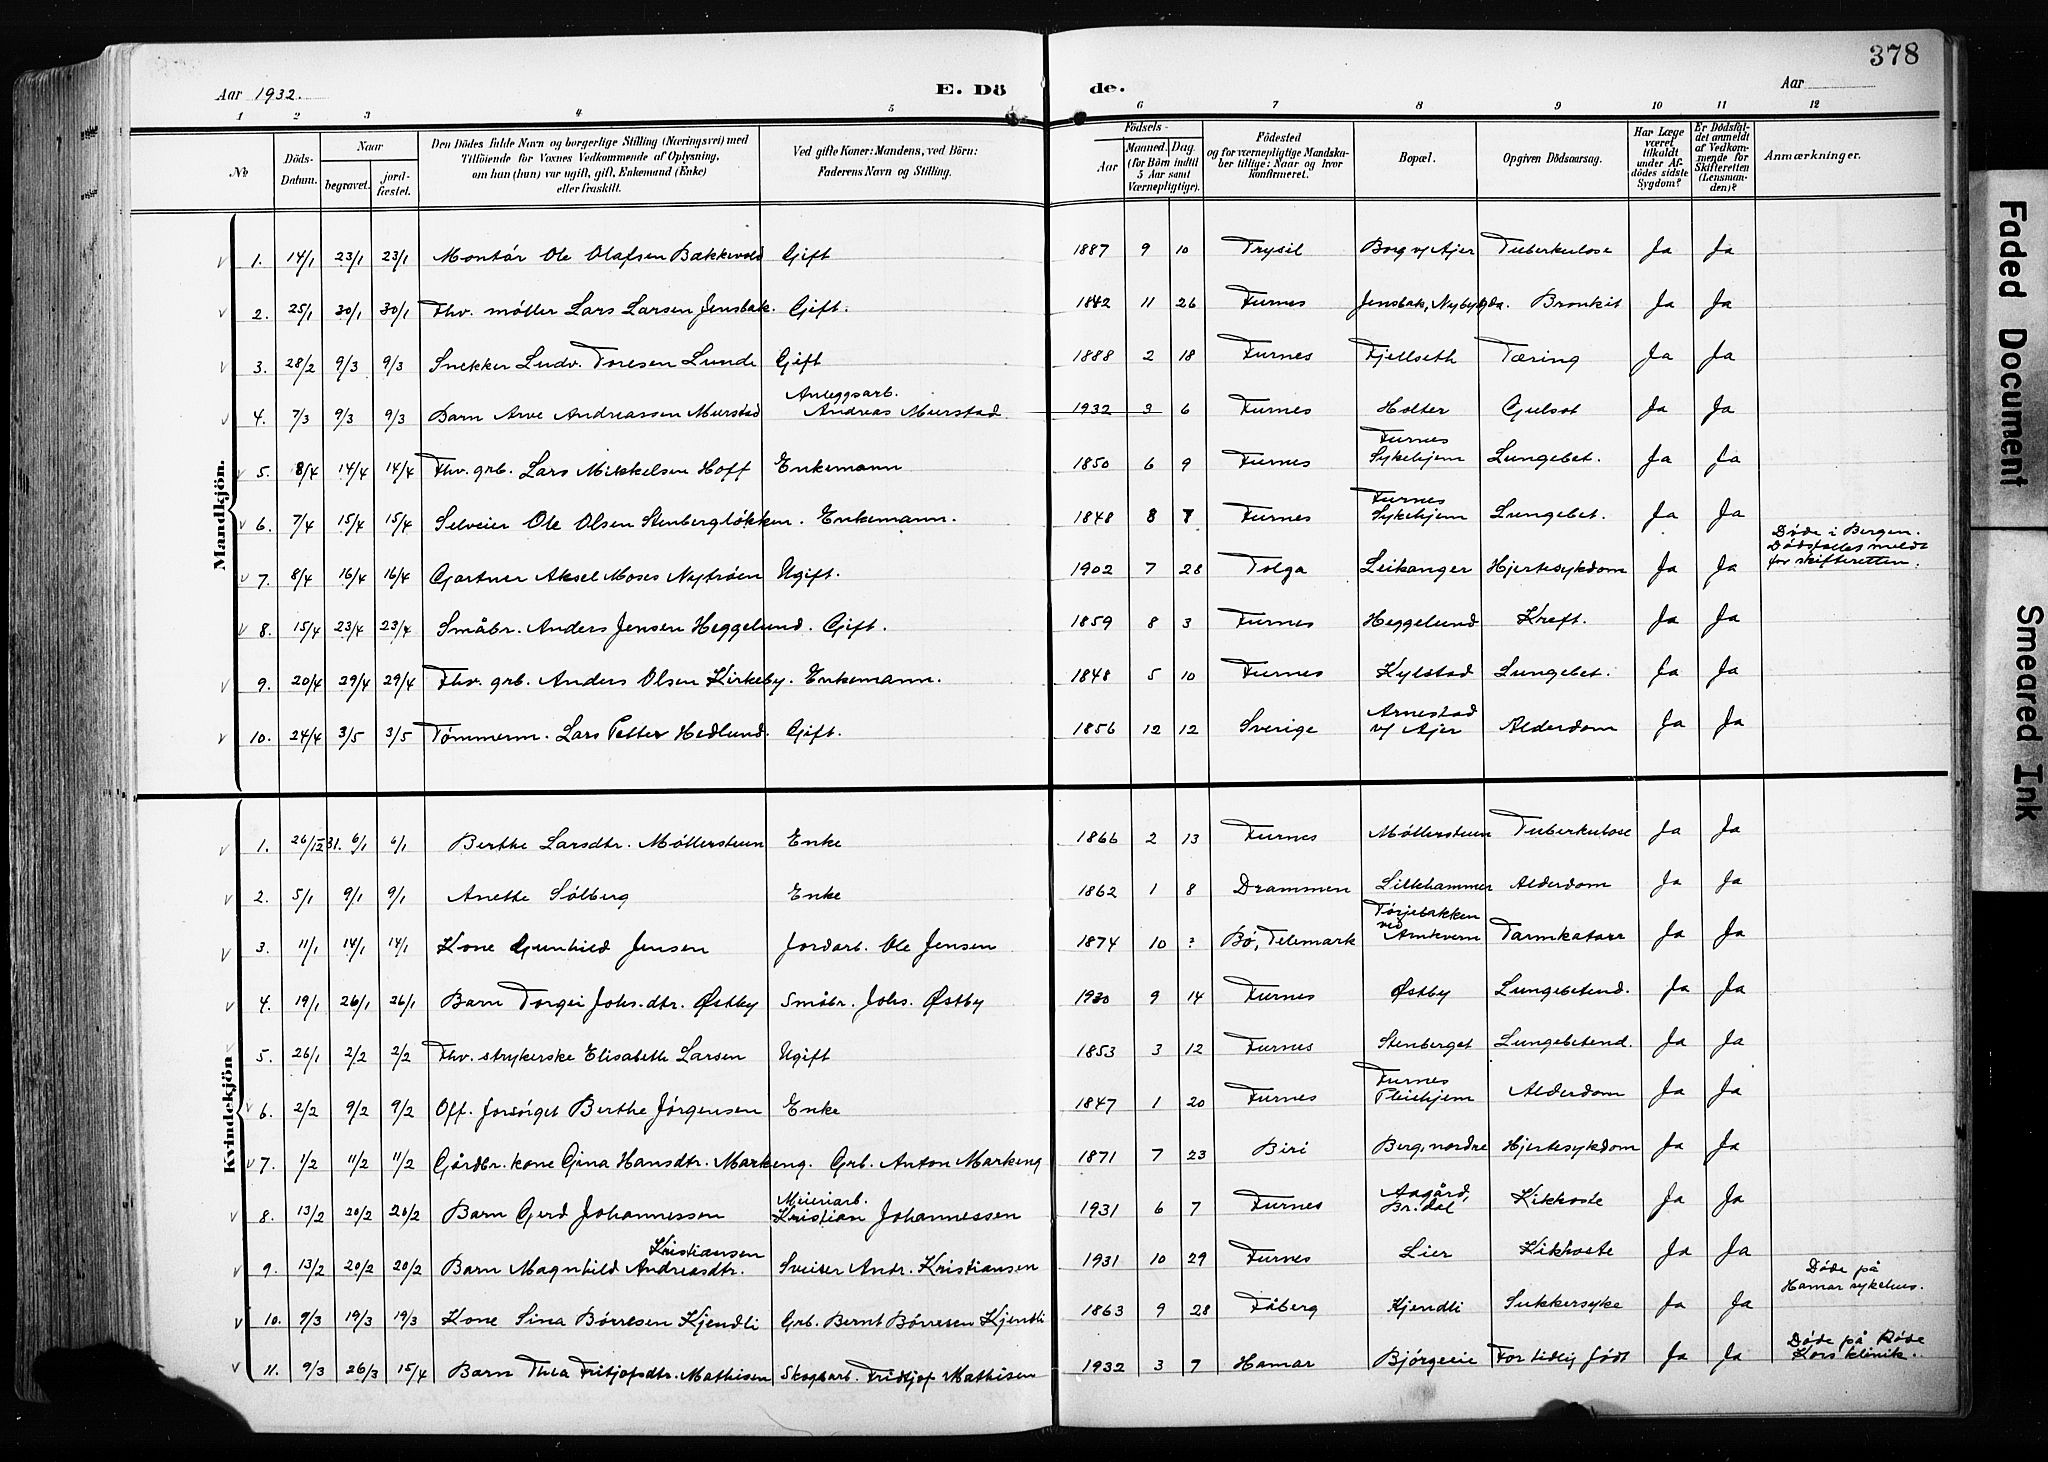 378
Aar 1932. E. Dö de. Aar
1 2 3 4 5 6 7 8 9 10 11 12
No
Döds-Datum.
Naar
begravet.
jord-fæstet.
Den Dödes fulde Navn og borgerlige Stilling (Næringsvei) med
Tilföiende for Voxnes Vedkommende af Oplysning,
om han (hun) var ugift, gift, Enkemand (Enke)
eller fraskilt.
Ved gifte Koner: Mandens, ved Börn:
Faderens Navn og Stilling.
Födsels-
Aar
Maaned. Dag.
(for Börn indtil
5 Aar samt
Værnepligtige).
Födested
og for værnepligtige Mandska-
ber tillige: Naar og hvor
konfirmeret.
Bopæl.
Opgiven Dödsaarsag.
Har Læge
været
tilkaldt
under Af-
dödes sidste
Sygdom?
Er Dödsfal-
det anmeldt
af Vedkom-
mende for
Skifteretten
(Lensman-
den)?
Anmærkninger.
Mandkjön.
1. 14/1 23/1 23/1 Montör Ole Olafsen Bækkevold Gift 1887 9 10 Trysil Borg v/ Ajer Tuberkulose Ja Ja
2. 25/1 30/1 30/1 Fhv. møller Lars Larsen Jensbak. Gift. 1842 11 26 Furnes Jensbak, Nybygda. Bronkit Ja Ja
3. 28/2 9/3 9/3 Snekker Ludv. Toresen Lunde Gift 1888 2 18 Furnes Fjellseth Tæring Ja Ja
4. 7/3 9/3 9/3 Barn Arve Andreassen Murstad Anleggsarb.
Andreas Murstad 1932 3 6 Furnes Holter Gulsot Ja Ja
5. 8/4 14/4 14/4 Fhv. grb. Lars Mikkelsen Hoff Enkemann 1850 6 9 Furnes Furnes
Sykehjem Lungebet. Ja Ja
6. 7/4 15/4 15/4 Selveier Ole Olsen Stenbergløkken. Enkemann. 1848 8 7 Furnes Furnes
Sykehjem Lungebet. Ja Ja
7. 8/4 16/4 16/4 Gartner Aksel Moses Nytrøen Ugift. 1902 7 28 Tolga Leikanger Hjertesykdom Ja Ja Døde i Bergen.
Dødsfallet meldt
for skifteretten.
8. 15/4 23/4 23/4 Småbr. Anders Jensen Heggelund. Gift. 1859 8 3 Furnes Heggelund Kreft. Ja Ja
9. 20/4 29/4 29/4 Fhv. grb. Anders Olsen Kirkeby. Enkemann. 1848 5 10 Furnes Kylstad Lungebet. Ja Ja
10. 24/4 3/5 3/5 Tømmerm. Lars Petter Hedlund. Gift. 1856 12 12 Sverige Arnestad
v/ Ajer Alderdom Ja Ja
Kvindekjön
1. 26/12 31. 6/1 6/1 Berthe Larsdtr. Møllersteun Enke 1866 2 13 Furnes Møllersteun Tuberkulose Ja Ja
2. 5/1 9/1 9/1 Anette Sølberg Enke 1862 1 8 Drammen Lillehammer Alderdom Ja Ja
3. 11/1 14/1 14/1 Kone Gunhild Jensen Jordarb. Ole Jensen 1874 10 ? Bø, Telemark Tørjebakken
ved
Arnkvern Tarmkatarr Ja Ja
4. 19/1 26/1 26/1 Barn Torgei Johs.dtr. Østby Småbr. Johs. Østby 1930 9 14 Furnes Østby Lungebetend. Ja Ja
5. 26/1 2/2 2/2 Fhv. strykerske Elisabeth Larsen Ugift 1853 3 12 Furnes Stenberget Lungebetend. Ja Ja
6. 2/2 9/2 9/2 Off. forsørget Berthe Jørgensen Enke 1847 1 20 Furnes Furnes
Pleiehjem Alderdom Ja Ja
7. 1/2 11/2 11/2 Gårdbr. kone Gina Hansdtr. Markeng. Grb. Anton Markeng 1871 7 23 Biri Berg, nordre Hjertesykdom Ja Ja
8. 13/2 20/2 20/2 Barn Gerd Johannessen Meieriarb.
Kristian Johannessen 1931 6 7 Furnes Aagård,
Br.dal Kikhoste Ja Ja
9. 13/2 20/2 20/2 Barn Magnhild Kristiansen
Andreasdtr. Sveiser Andr. Kristiansen 1931 10 29 Furnes Lier Kikhoste Ja Ja
10. 9/3 19/3 19/3 Kone Sina Børresen Kjendli Grb. Bernt Børresen Kjendli 1863 9 28 Fåberg Kjendli Sukkersyke Ja Ja Døde på
Hamar sykehus.
11. 9/3 26/3 15/4 Barn Thea Fritjofsdtr. Mathisen Skogsarb. Fridtjof Mathisen 1932 3 7 Hamar Bjørgeie For tidlig født Ja Ja Døde på Røde
Kors klinik.
Faded Document
Smeared Ink